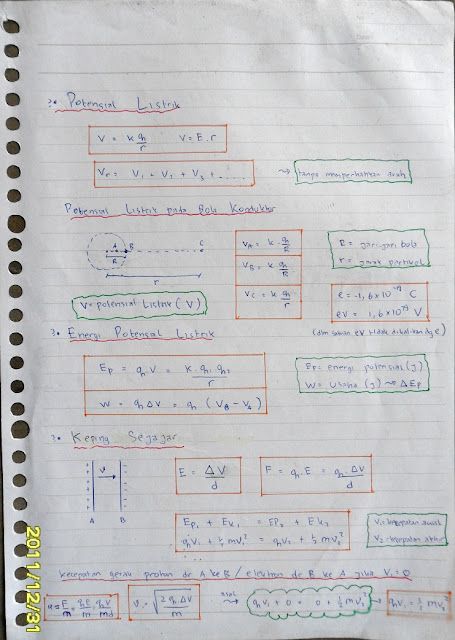 3. Potensial Listrik
V = k q/r    V = E.r
Vr = V₁ + V₂ + V₃ + ......  → tanpa memperhatikan arah
Potensial Listrik pada Bola Konduktor
A B C
R
r
VA = k . q/R
VB = k q/R
VC = k q/r
R = jari-jari bola
r = jarak partikel
V = potensial listrik (V)
e = -1,6x10⁻¹⁹ C
eV = 1,6x10⁻¹⁹ V
(dlm satuan eV tidak dikalikan dg e)
3. Energi Potensial Listrik
Ep = q V = k . q₁ q₂/r
W = q ΔV = q (VB - VA)
Ep = energi potensial (J)
W = Usaha (J) → ΔEp
3. Keping Sejajar
V
A B
E = ΔV/d    F = q . E = q . ΔV/d
Ep₁ + Ek₁ = EP₂ + Ek₂
qV₁ + ½ mv₁² = qV₂ + ½ mv₂²
V₁ = kecepatan awal
V₂ = kecepatan akhir
kecepatan gerak proton dr A ke B / elektron dr B ke A jika V₁ = 0
a = F/m = qE/m = qV/md
V = √(2q.ΔV/m)
→ qV₁ + 0 = 0 + ½ mv₂² → qV₁ = ½ mv₂²
2011/12/31